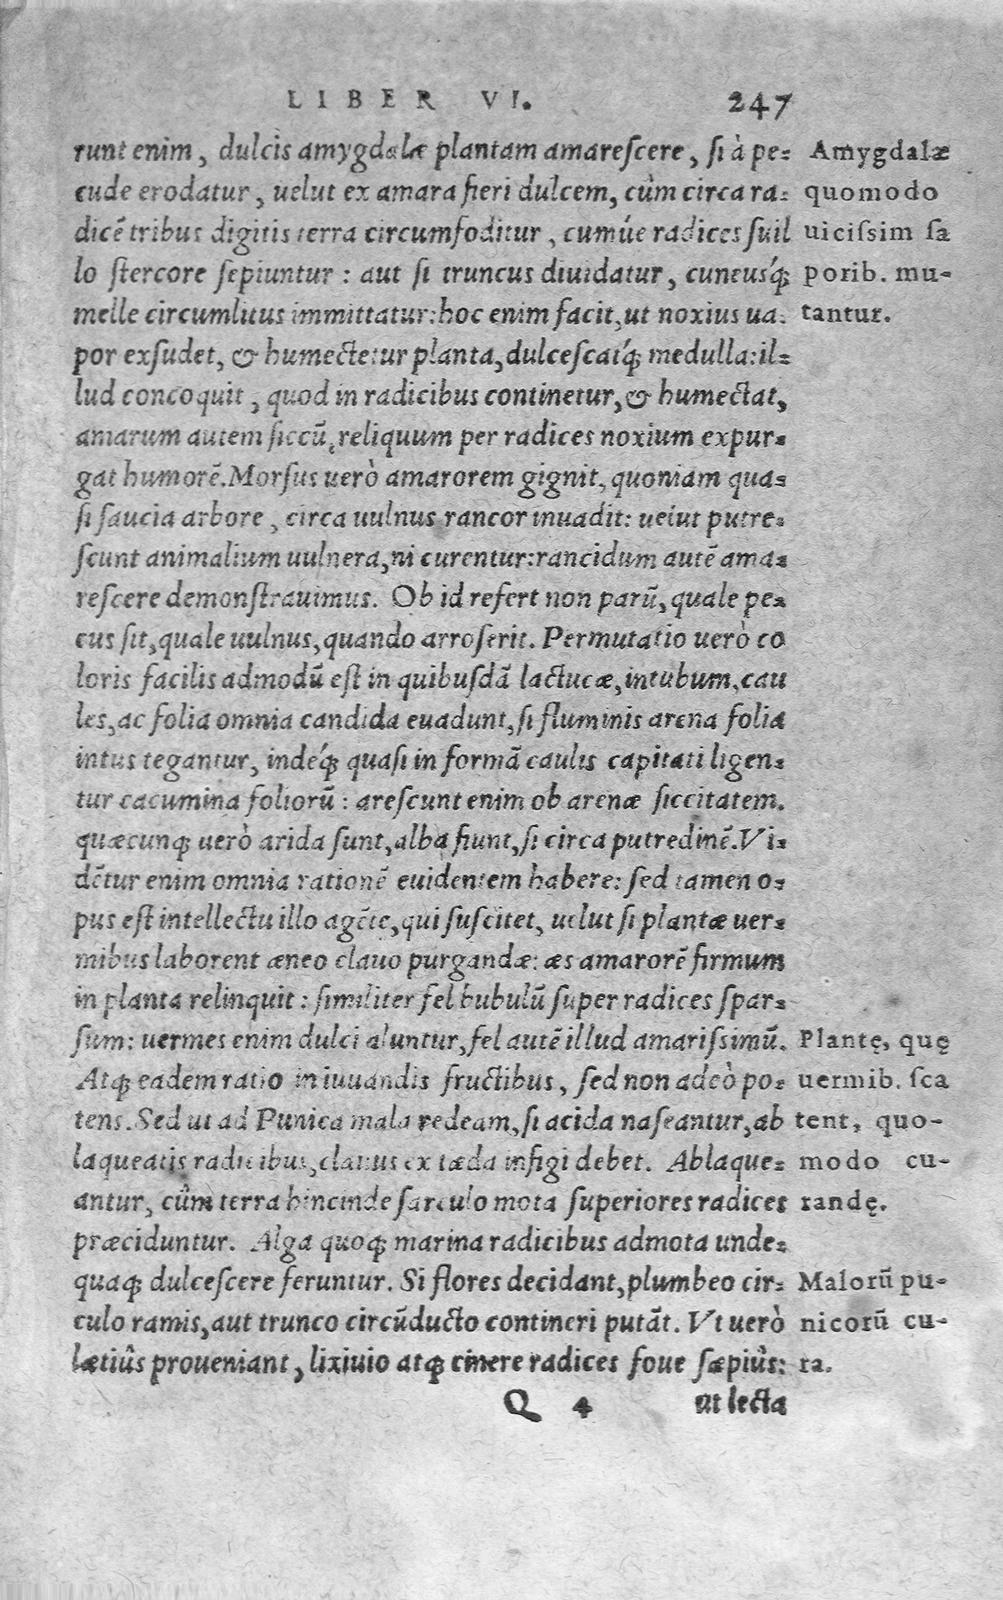 LIBER VI. 247
runt enim, dulcis amygdalæ plantam amarescere, si à pe=
cude erodatur, uelut ex amara fieri dulcem, cûm circa ra=
dicẽ tribus digitis terra circumfoditur, cumúe radices suil
lo stercore sepiuntur: aut si truncus diuidatur, cuneusq́;
melle circumlitus immittatur: hoc enim facit, ut noxius ua=
por exsudet, & humectetur planta, dulcescatq́; medulla: il=
lud concoquit, quod in radicibus continetur, & humectat,
amarum autem siccũ, reliquum per radices noxium expur=
gat humorẽ. Morsus uerò amarorem gignit, quoniam qua=
si saucia arbore, circa uulnus rancor inuadit: uelut putre=
scunt animalium uulnera, ni curentur: rancidum autẽ ama=
rescere demonstrauimus. Ob id refert non parũ, quale pe=
cus sit, quale uulnus, quando arroserit. Permutatio uerò co
loris facilis admodũ est in quibusdã lactucæ, intubum, cau
les, ac folia omnia candida euadunt, si fluminis arena folia
intus tegantur, indeq́; quasi in formã caulis capitati ligen=
tur cacumina foliorũ: arescunt enim ob arenæ siccitatem.
quæcunq; uerò arida sunt, alba fiunt, si circa putredinẽ. Vi=
dẽtur enim omnia rationẽ euidentem habere: sed tamen o=
pus est intellectu illo agẽte, qui suscitet, uelut si plantæ uer=
mibus laborent æneo clauo purgandæ: æs amarorẽ firmum
in planta relinquit: similiter fel bubulũ super radices spar=
sum: uermes enim dulci aluntur, fel autẽ illud amarissimũ.
Atq; eadem ratio in iuuandis fructibus, sed non adeò po=
tens. Sed ut ad Punica mala redeam, si acida nascantur, ab
laqueatis radicibus, clauus ex tæda infigi debet. Ablaque=
antur, cûm terra hincinde sarculo mota superiores radices
præciduntur. Alga quoq; marina radicibus admota unde=
quaq; dulcescere feruntur. Si flores decidant, plumbeo cir=
culo ramis, aut trunco circũducto contineri putãt. Vt uerò
lætiûs proueniant, lixiuio atq; cinere radices foue sæpiûs:
Q 4 ut lecta
Amygdalæ
quomodo
uicissim sa
porib. mu-
tantur.
Plantę, quę
uermib. sca
tent, quo-
modo cu-
randę.
Malorũ pu-
nicorũ cu-
ra.